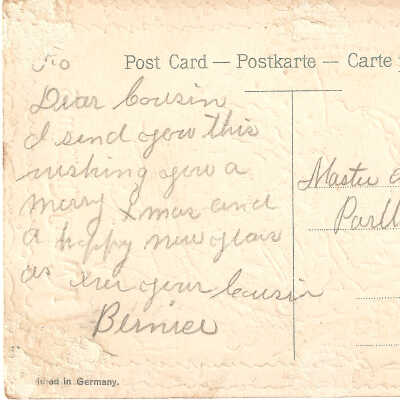 Post Card — Postkarte — Carte
Dear Cousin
I send you this
wishing you a
merry Xmas and
a happy new year
as ever your Cousin
Bernice
Master
in Germany.